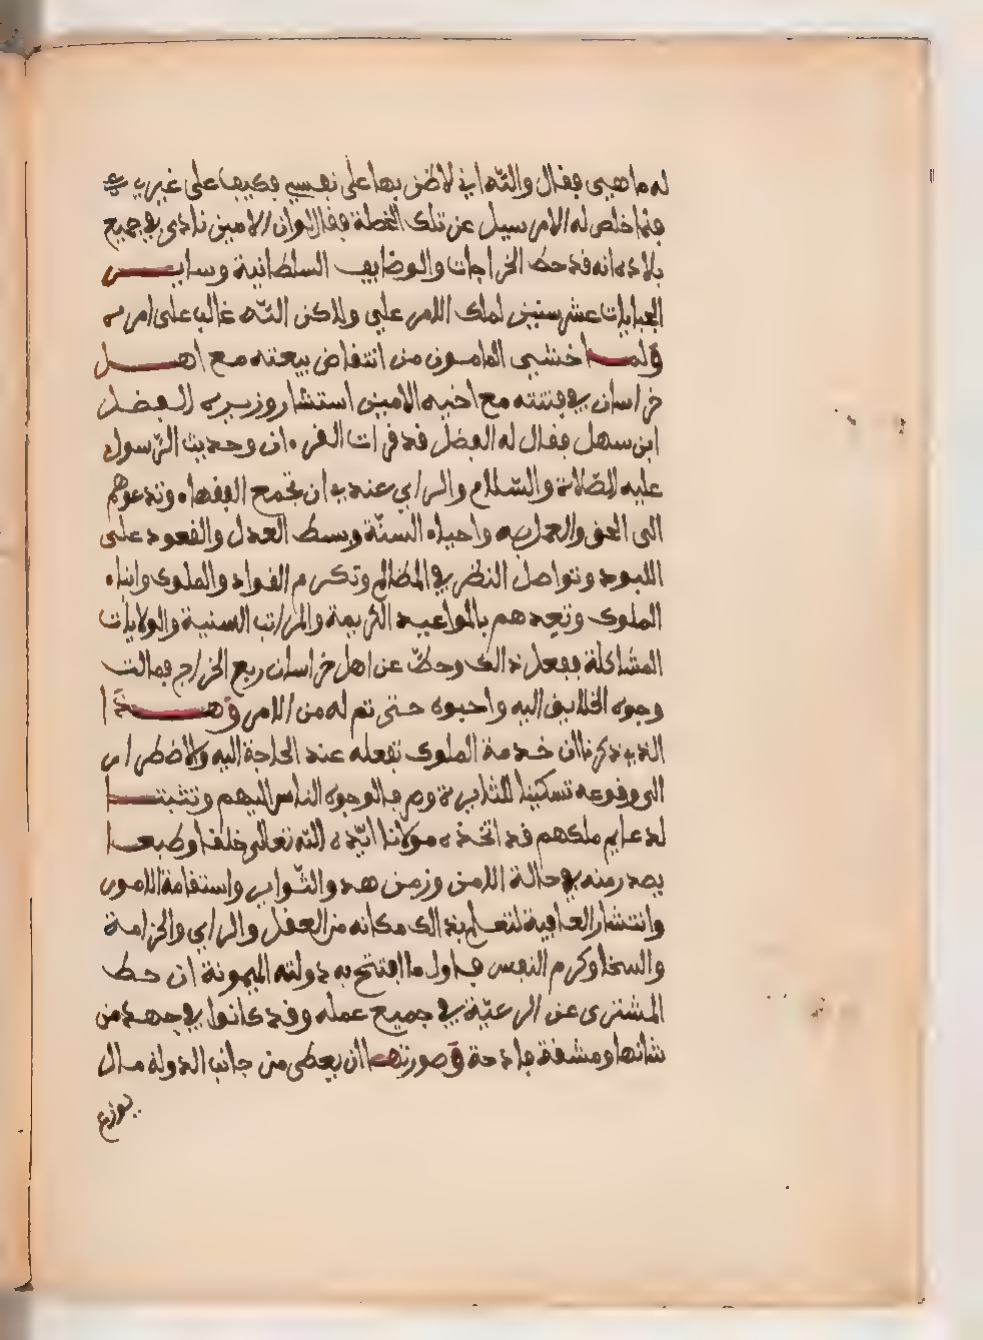 له ما هي فقال والله اني لاظن بها على نفسي فكيف على غيري
فلما خلص له الامر سيل عن تلك الخطة فقال لو ان الامين نادى في جميع
بلاده انه قد حط الخراجات والوضايف السلطانية وساير
الجبايات عشر سنين لملك الامر علي ولاكن الله غالب على امره
ولما خشي المامون من انتقاض بيعته مع اهل
خراسان في فتنته مع اخيه الامين استشار وزيره الفضل
ابن سهل فقال له الفضل قد قرات القرءان وحديث الرسول
عليه الصلاة والسلام والراي عندي ان تجمع الفقهاء وتدعوهم
الى الحق والعمل به واحياء السنة وبسط العدل والقعود على
اللبود وتواصل النظر في المظالم وتكرم القواد والملوك وابناء
الملوك وتعدهم بالمواعيد الكريمة والمراتب السنية والولايات
المشاكلة ففعل ذالك وحط عن اهل خراسان ربع الخراج فمالت
وجوه الخلايق اليه واحبوه حتى تم له من الامر وهذا
الذي ذكرنا ان خدمة الملوك تفعله عند الحاجة اليه والاضطرار
الى وقوعه تسكينا للثايرة وصرفا لوجوه الناس اليهم وتثبيتا
لدعايم ملكهم قد اتخذه مولانا ايده الله تعالى خلقا وطبعا
يصدر منه في حالة الامن وزمن هدو الثواير واستقامة الامور
وانتشار العافية لتعلم بذالك مكانه من العقل والراي والحزامة
والسخا وكرم النفس فاول ما افتتح به دولته الميمونة ان حط
المشترى عن الرعية في جميع عمله وقد كانوا في جهد من
شانها ومشقة فادحة وصورتها ان يعطى من جانب الدولة مال
يوزع